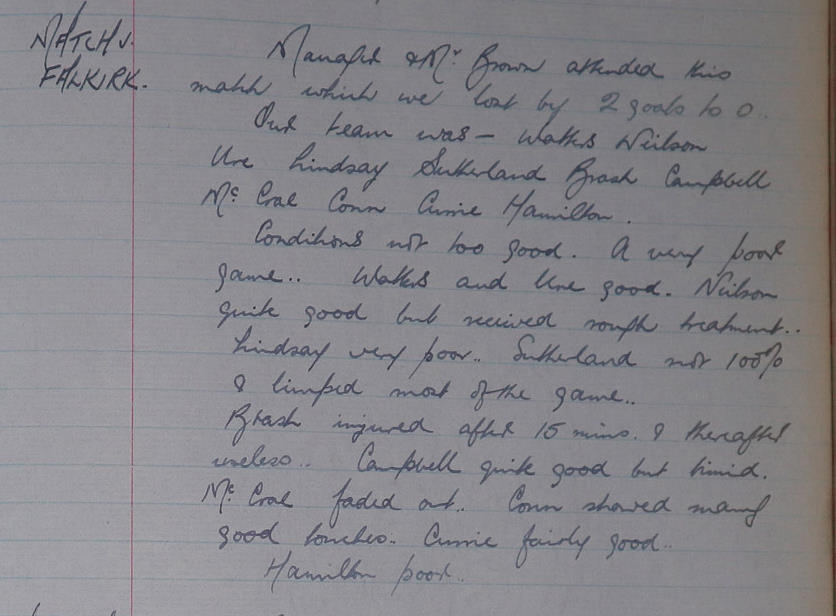 MATCH V.
FALKIRK.
Manager & Mr. Brown attended this
match which we lost by 2 goals to 0.
Our team was – Watters Neilson
Ure Lindsay Sutherland Brash Campbell
Mc Crae Conn Currie Hamilton.
Conditions not too good. A very poor
game.. Watters and Ure good. Neilson
quite good but received rough treatment..
Lindsay very poor.. Sutherland not 100%
& limped most of the game..
Brash injured after 15 mins. & thereafter
useless.. Campbell quite good but timid.
Mc Crae faded out.. Conn showed many
good touches.. Currie fairly good..
Hamilton poor..